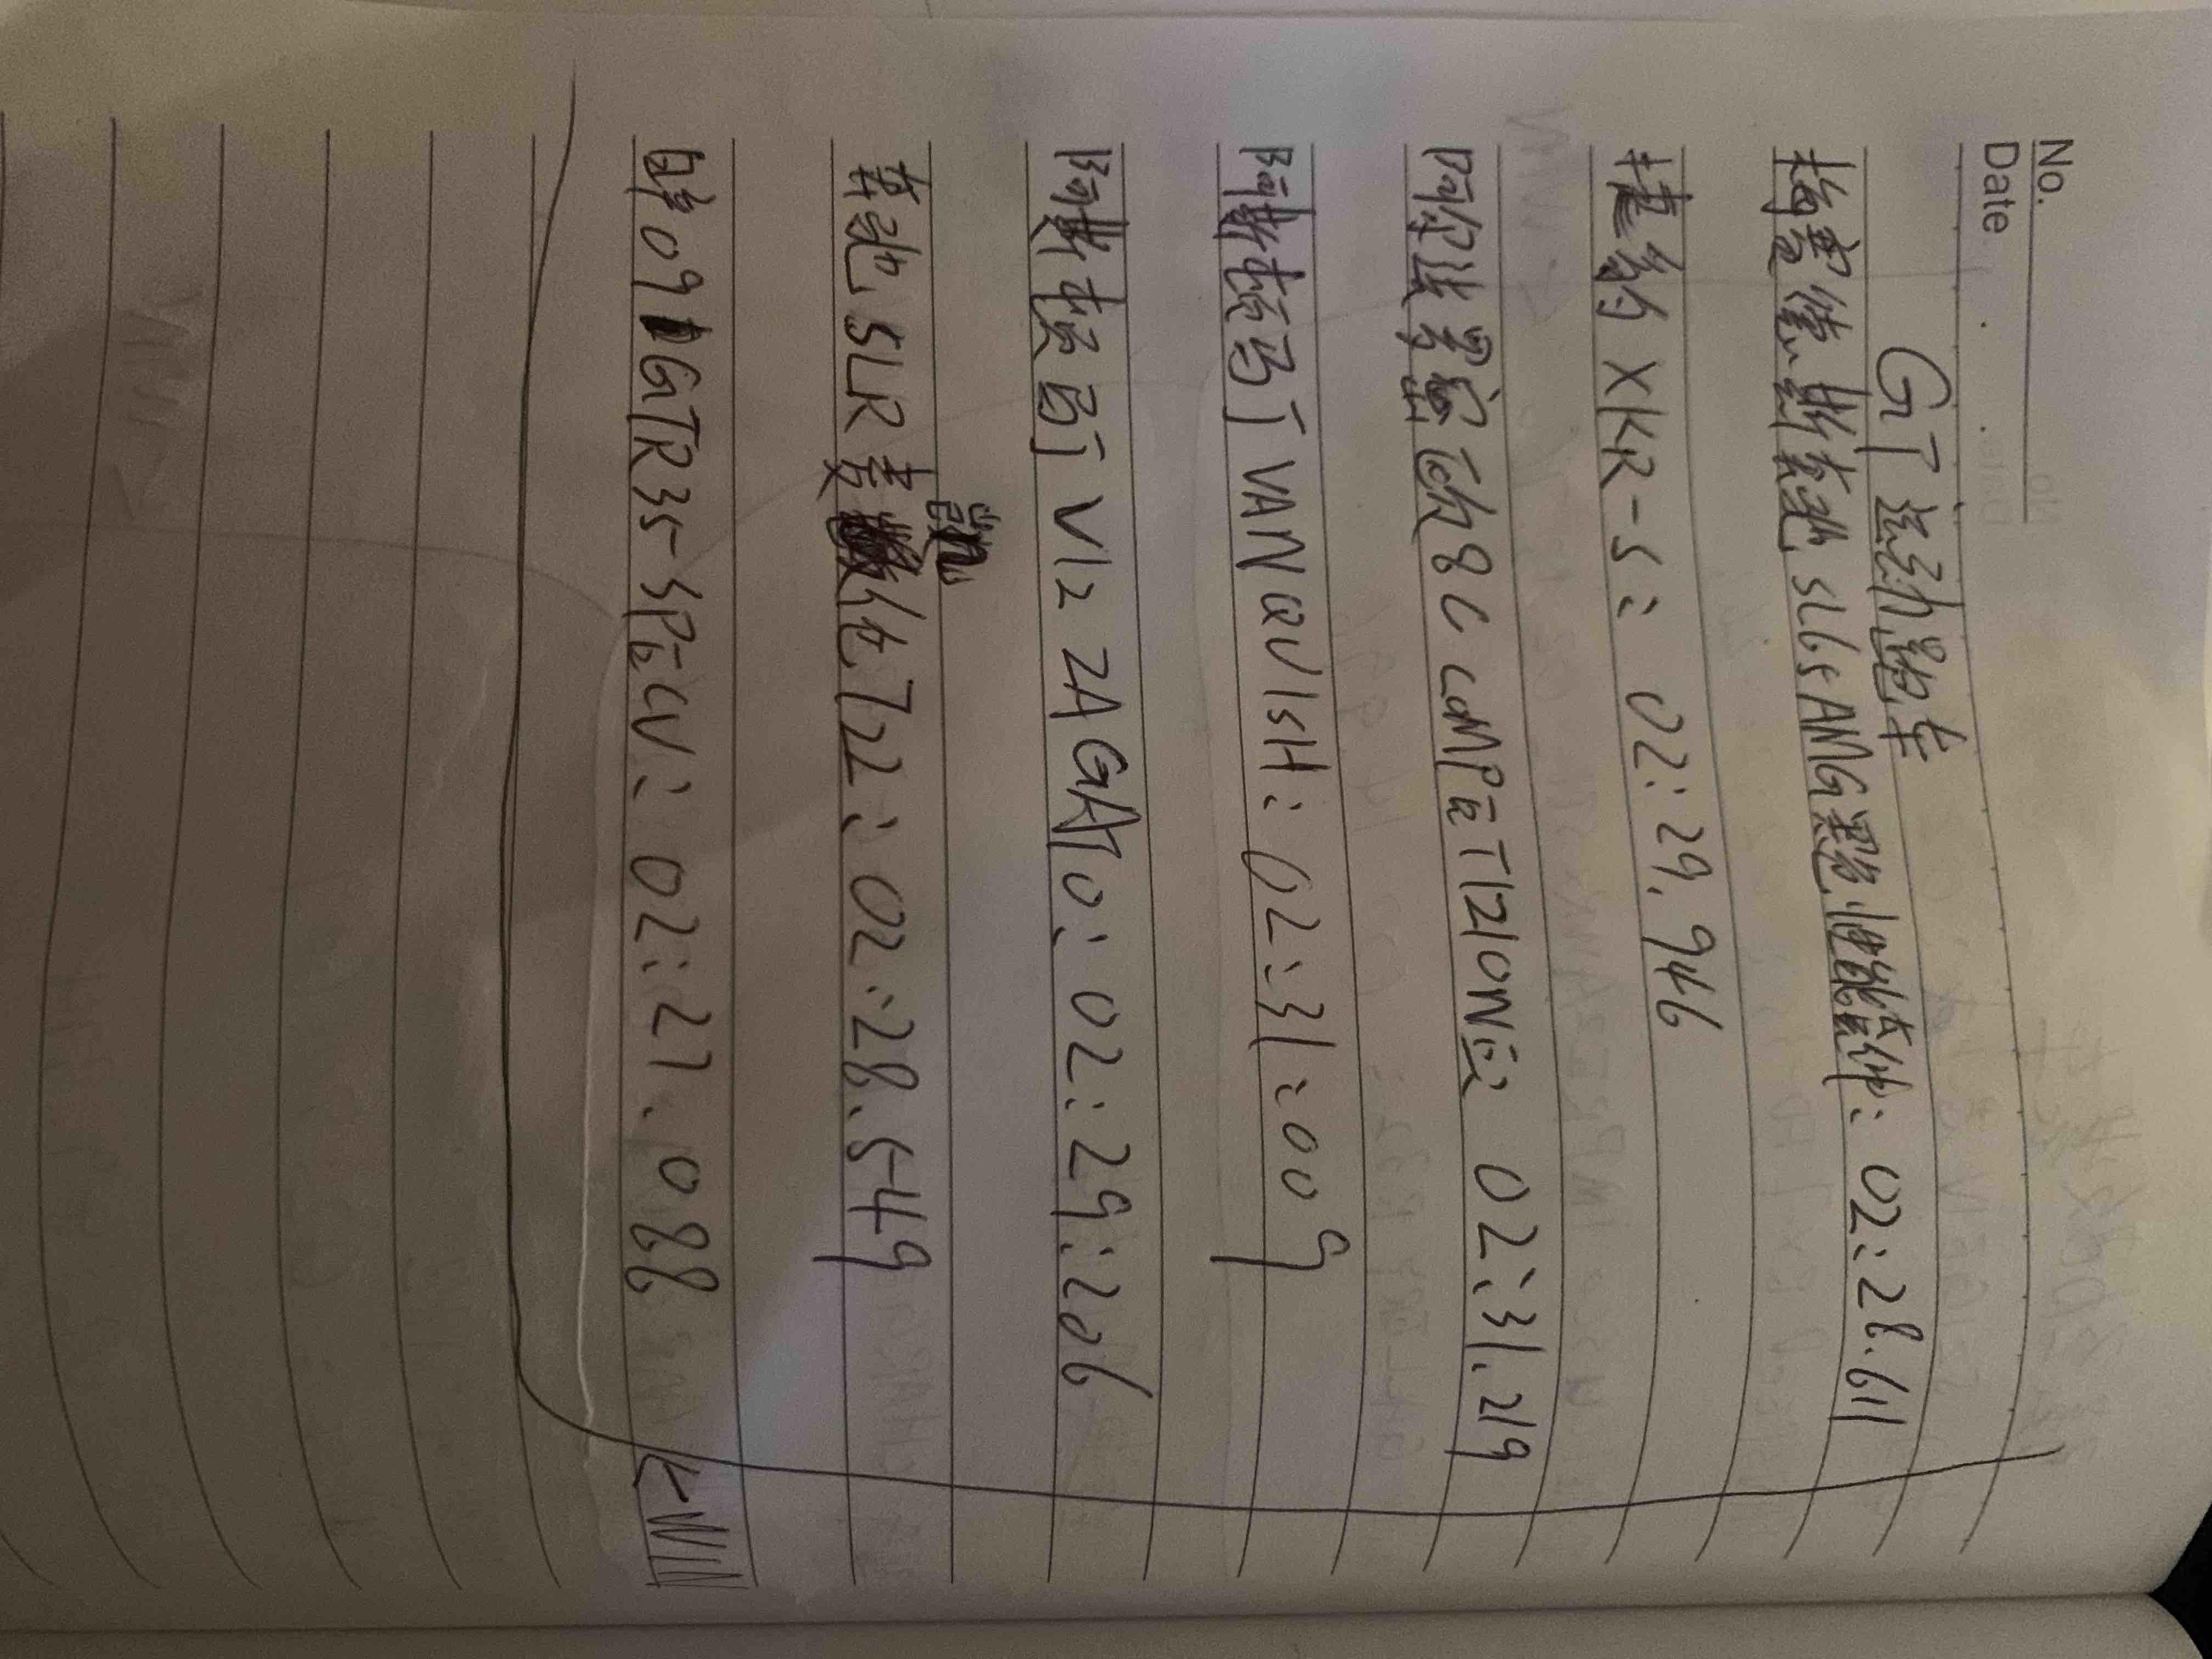 No.
Date
GT 运动跑车
梅赛德斯奔驰SL65AMG黑色性能套件：02:28.611
捷豹 XKR-S：02:29.946
阿尔法罗密欧8C COMPETIZIONE：02:31.219
阿斯顿马丁 VANQUISH：02:31:009
阿斯顿马丁 V12 ZAGATO：02:29:206
奔驰 SLR 麦凯伦722：02:28.549
日产09 GTR35-SPECV：02:27.088
←WIN